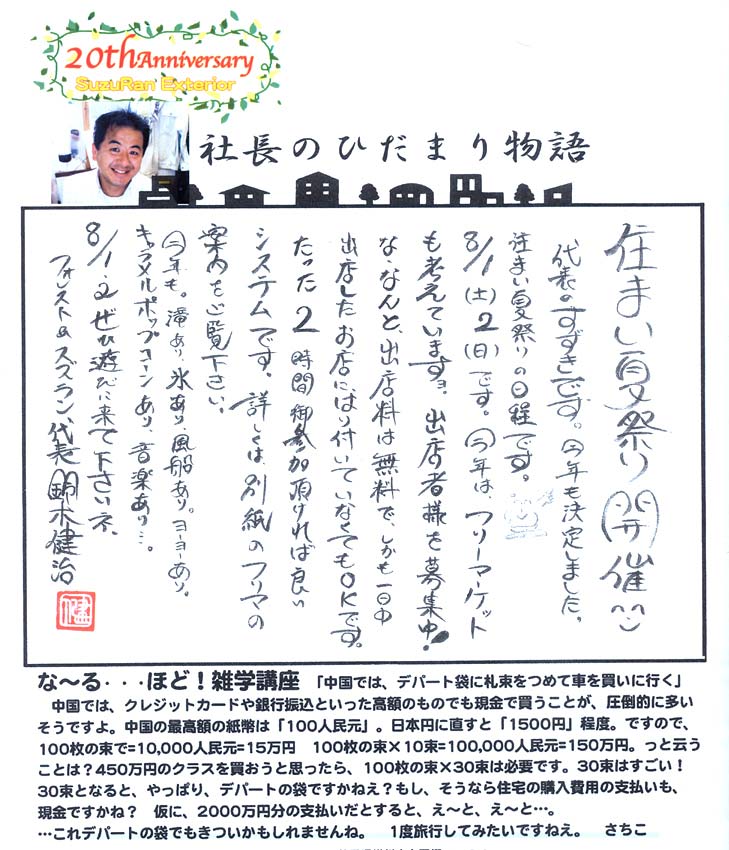 20th Anniversary
SuzuRan Exterior
社長のひだまり物語
住まい夏祭り開催
代表のすずきです。今年も決定しました、
住まい夏祭りの日程です。
8/1(土)2(日)です。今年は、フリーマーケット
も考えています。出店者様を募集中!
な・なんと、出店料は無料で、しかも一日中
出店したお店に、はり付いていなくてもOKです。
たった2時間御参加頂ければ良い
システムです。詳しくは、別紙のフリマの
案内をご覧下さい。
今年も。滝あり、氷あり、風船あり。ヨーヨーあり。
キャラメルポップコーンあり、音楽あり…。
8/1・2ぜひ遊びに来て下さいネ、
フォレスト&スズラン、代表 鈴木健治
な〜る・・・ほど!雑学講座 「中国では、デパート袋に札束をつめて車を買いに行く」
中国では、クレジットカードや銀行振込といった高額のものでも現金で買うことが、圧倒的に多い
そうですよ。中国の最高額の紙幣は「100人民元」。日本円に直すと「1500円」程度。ですので、
100枚の束で=10,000人民元=15万円 100枚の束×10束=100,000人民元=150万円。っと云う
ことは?450万円のクラスを買おうと思ったら、100枚の束×30束は必要です。30束はすごい!
30束となると、やっぱり、デパートの袋ですかねえ?もし、そうなら住宅の購入費用の支払いも、
現金ですかね? 仮に、2000万円分の支払いだとすると、え〜と、え〜と…。
…これデパートの袋でもきついかもしれませんね。 1度旅行してみたいですねえ。 さちこ